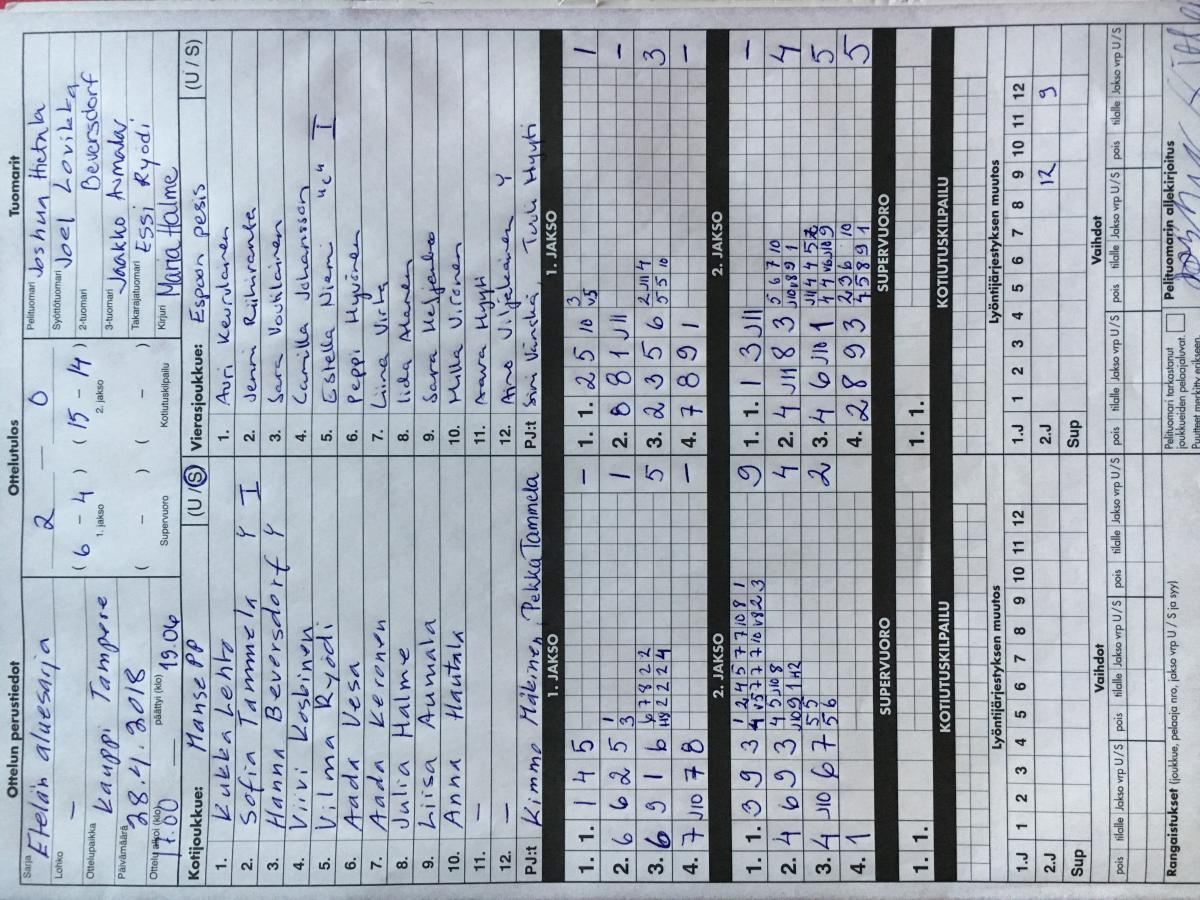 Ottelun perustiedot
Sarja Etelän aluesarja
Lohko –
Ottelupaikka Kauppi Tampere
Päivämäärä 28.4.2018
Ottelu alkoi (klo) 17.00 päättyi (klo) 19.06
Ottelutulos
2 — 0
( 6 - 4 ) ( 15 - 14 )
1. jakso 2. jakso
( - ) ( - )
Supervuoro Kotiutuskilpailu
Tuomarit
Pelituomari Joshua Hietala
Syöttötuomari Joel Lovikka
2-tuomari Beversdorf
3-tuomari Jaakko Aumala
Takarajatuomari Essi Ryödi
Kirjuri Maria Halme
Kotijoukkue: Manse PP (U / S)
1. Kukka Lehto
2. Sofia Tammela Y I
3. Hanna Beversdorf Y
4. Viivi Koskinen
5. Vilma Ryödi
6. Aada Vesa
7. Aada Keronen
8. Julia Halme
9. Liisa Aumala
10. Anna Hautala
11. –
12. –
PJ:t Kimmo Mäkinen, Pekka Tammela
Vierasjoukkue: Espoon pesis (U / S)
1. Auri Keurulainen
2. Jenni Riihiranta
3. Sara Voutilainen
4. Camilla Johansson
5. Estella Niemi "c" I
6. Peppi Hyvönen
7. Liina Virta
8. Iida Ahonen
9.
10. Milla Vironen
11. Aava Hyyti
12. Aino Viljakainen Y
PJ:t Sini Vänskä, Tuuli Hyyti
1. JAKSO
1. 1. 1 4 5 –
2. 6 6 2 5 3 1 1
3. 6 9 1 6 5
4. 7 J10 7 8 –
1. JAKSO
1. 1. 2 5 10 3 v5 1
2. 8 8 1 J11 –
3. 2 3 5 6 2 J11 4 5 5 10 3
4. 7 8 9 1 –
2. JAKSO
1. 1. 3 9 3 9
2. 4 6 9 3 4
3. 4 J10 6 7 5 5 5 6 2
4. 1
2. JAKSO
1. 1. 1 3 J11 –
2. 4 J11 8 3 5 6 7 10 4
3. 4 6 J10 1 5
4. 2 8 9 3 2 3 6 10 4 5 8 9 1 5
SUPERVUORO
1. 1.
SUPERVUORO
1. 1.
KOTIUTUSKILPAILU
KOTIUTUSKILPAILU
Lyöntijärjestyksen muutos
1.J 1 2 3 4 5 6 7 8 9 10 11 12
2.J
Sup
Lyöntijärjestyksen muutos
1.J 1 2 3 4 5 6 7 8 9 10 11 12
2.J 12 9
Sup
Vaihdot
pois tilalle Jakso vrp U / S pois tilalle Jakso vrp U / S pois tilalle Jakso vrp U / S
Vaihdot
pois tilalle Jakso vrp U / S pois tilalle Jakso vrp U / S pois tilalle Jakso vrp U / S
Rangaistukset (joukkue, pelaaja nro, jakso vrp U / S ja syy)
Pelituomari tarkastanut
joukkueiden pelaajaluvat.
Puutteet merkitty erikseen.
Pelituomarin allekirjoitus